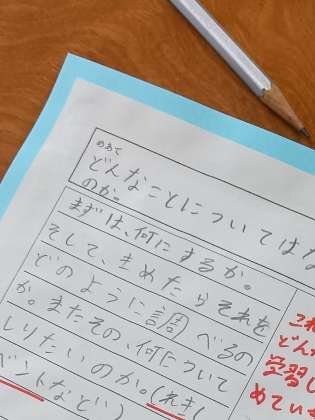 めあて
どんなことについてはな
のか。
まずは、何にするか。
そして、きめたらそれを
どのように調べるの
か。またその、何について
しりたいのか。(れきし
ベントなど)
これ
どん
学習し
めてい